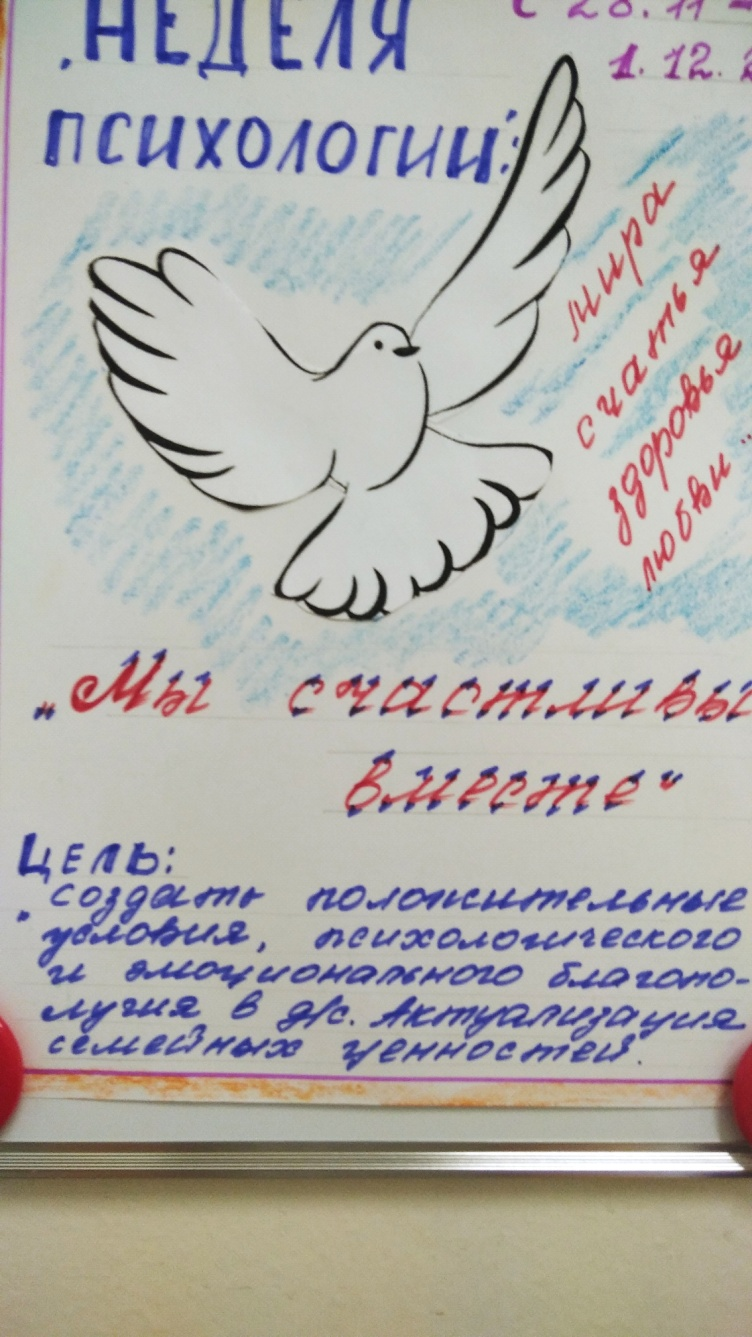 НЕДЕЛЯ
ПСИХОЛОГИИ:
с 28.11 -
1.12.2
мира
счастья
здоровья
любви...
„Мы счастливы
вместе“
ЦЕЛЬ:
создать положительные
условия, психологического
и эмоционального благопо-
лучия в д/с. Актуализация
семейных ценностей.